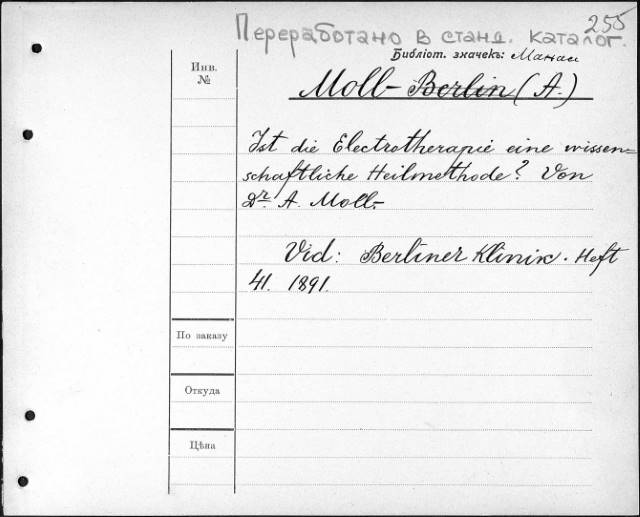 255
Переработано в станд. каталог.
Библіот. значекъ:
Инв.
№
Moll-Berlin (A.)
Ist die Electrotherapie eine wissen=
schaftliche Heilmethode? Von
Dr. A. Moll.-
Vid: Berliner Klinik. Heft
41. 1891.
По заказу
Откуда
Цѣна